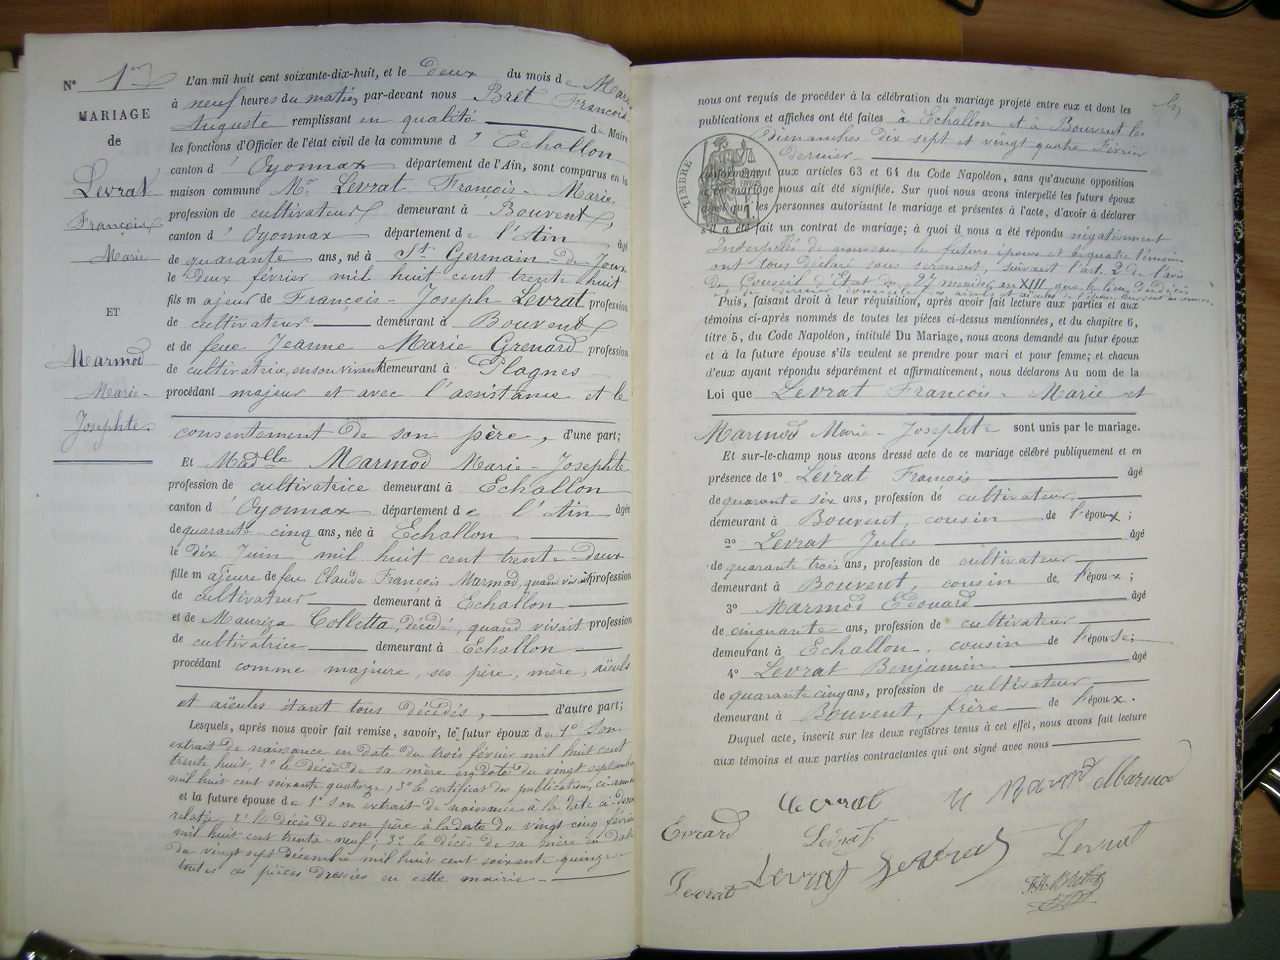 N° 1er
MARIAGE
de
Levrat
François
Marie
ET
Marmod
Marie-
Josephte.
L'an mil huit cent soixante-dix-huit, et le deux du mois de Mars
à neuf heures du matin, par-devant nous Bret François
Auguste remplissant en qualité de Maire
les fonctions d'Officier de l'état civil de la commune d'Echallon
canton d'Oyonnax département de l'Ain, sont comparus en la
maison commune Mr Levrat François-Marie,
profession de cultivateur demeurant à Bouvent,
canton d'Oyonnax département de l'Ain âgé
de quarante ans, né à St Germain de Joux
le deux février mil huit cent trente huit
fils majeur de François-Joseph Levrat profession
de cultivateur demeurant à Bouvent
et de feue Jeanne Marie Grenard profession
de cultivatrice, en son vivant demeurant à Plagnes
procédant majeur et avec l'assistance et le
consentement de son père, d'une part;
Et Madelle Marmod Marie-Josephte
profession de cultivatrice demeurant à Echallon
canton d'Oyonnax département de l'Ain âgée
de quarante cinq ans, née à Echallon
le dix Juin mil huit cent trente-deux
fille majeure de feu Claude François Marmod, quand vivait profession
de cultivateur demeurant à Echallon
et de Mauriza Colletta, décédé, quand vivait profession
de cultivatrice demeurant à Echallon
procédant comme majeure, ses père, mère, aïeuls
et aïeules étant tous décédés, d'autre part;
Lesquels, après nous avoir fait remise, savoir, le futur époux de 1° Son
extrait de naissance en date du trois février mil huit cent
trente huit, 2° le décès de sa mère en date du vingt septembre
mil huit cent soixante quatorze, 3° le certificat des publications,
et la future épouse de 1° son extrait de naissance à la date ci-dessus
relatée, 2° le décès de son père à la date du vingt cinq février
mil huit cent trente-neuf, 3° le décès de sa mère en date
du vingt sept décembre mil huit cent soixante quinze
toutes ces pièces dressées en cette mairie.
nous ont requis de procéder à la célébration du mariage projeté entre eux et dont les
publications et affiches ont été faites à Echallon et à Bouvent les
dimanches dix sept et vingt quatre février
dernier
TIMBRE
conformément aux articles 63 et 64 du Code Napoléon, sans qu'aucune opposition
à ce mariage nous ait été signifiée. Sur quoi nous avons interpellé les futurs époux
ainsi que les personnes autorisant le mariage et présentes à l'acte, d'avoir à déclarer
s'il a été fait un contrat de mariage; à quoi il nous a été répondu négativement
Interpellés de nouveau, le futurs époux et à quatre témoins
ont tous déclaré sous serment, suivant l'art. 2 de l'avis
du Conseil d'Etat du 27 messidor an XIII que le lieu du décès
et du dernier domicile des aïeuls et aïeules de l'épouse
Puis, faisant droit à leur réquisition, après avoir fait lecture aux parties et aux
témoins ci-après nommés de toutes les pièces ci-dessus mentionnées, et du chapitre 6,
titre 5, du Code Napoléon, intitulé Du Mariage, nous avons demandé au futur époux
et à la future épouse s'ils veulent se prendre pour mari et pour femme; et chacun
d'eux ayant répondu séparément et affirmativement, nous déclarons Au nom de la
Loi que Levrat François-Marie et
Marmod Marie-Josephte sont unis par le mariage.
Et sur-le-champ nous avons dressé acte de ce mariage célébré publiquement et en
présence de 1° Levrat François âgé
de quarante six ans, profession de cultivateur
demeurant à Bouvent, cousin de l'époux;
2° Levrat Jules âgé
de quarante trois ans, profession de cultivateur
demeurant à Bouvent, cousin de l'époux;
3° Marmod Edouard âgé
de cinquante ans, profession de cultivateur
demeurant à Echallon, cousin de l'épouse;
4° Levrat Benjamin âgé
de quarante cinq ans, profession de cultivateur
demeurant à Bouvent, frère de l'époux.
Duquel acte, inscrit sur les deux registres tenus à cet effet, nous avons fait lecture
aux témoins et aux parties contractantes qui ont signé avec nous
Levrat Marmod
Evrard Levrat
Levrat Levrat Levrat